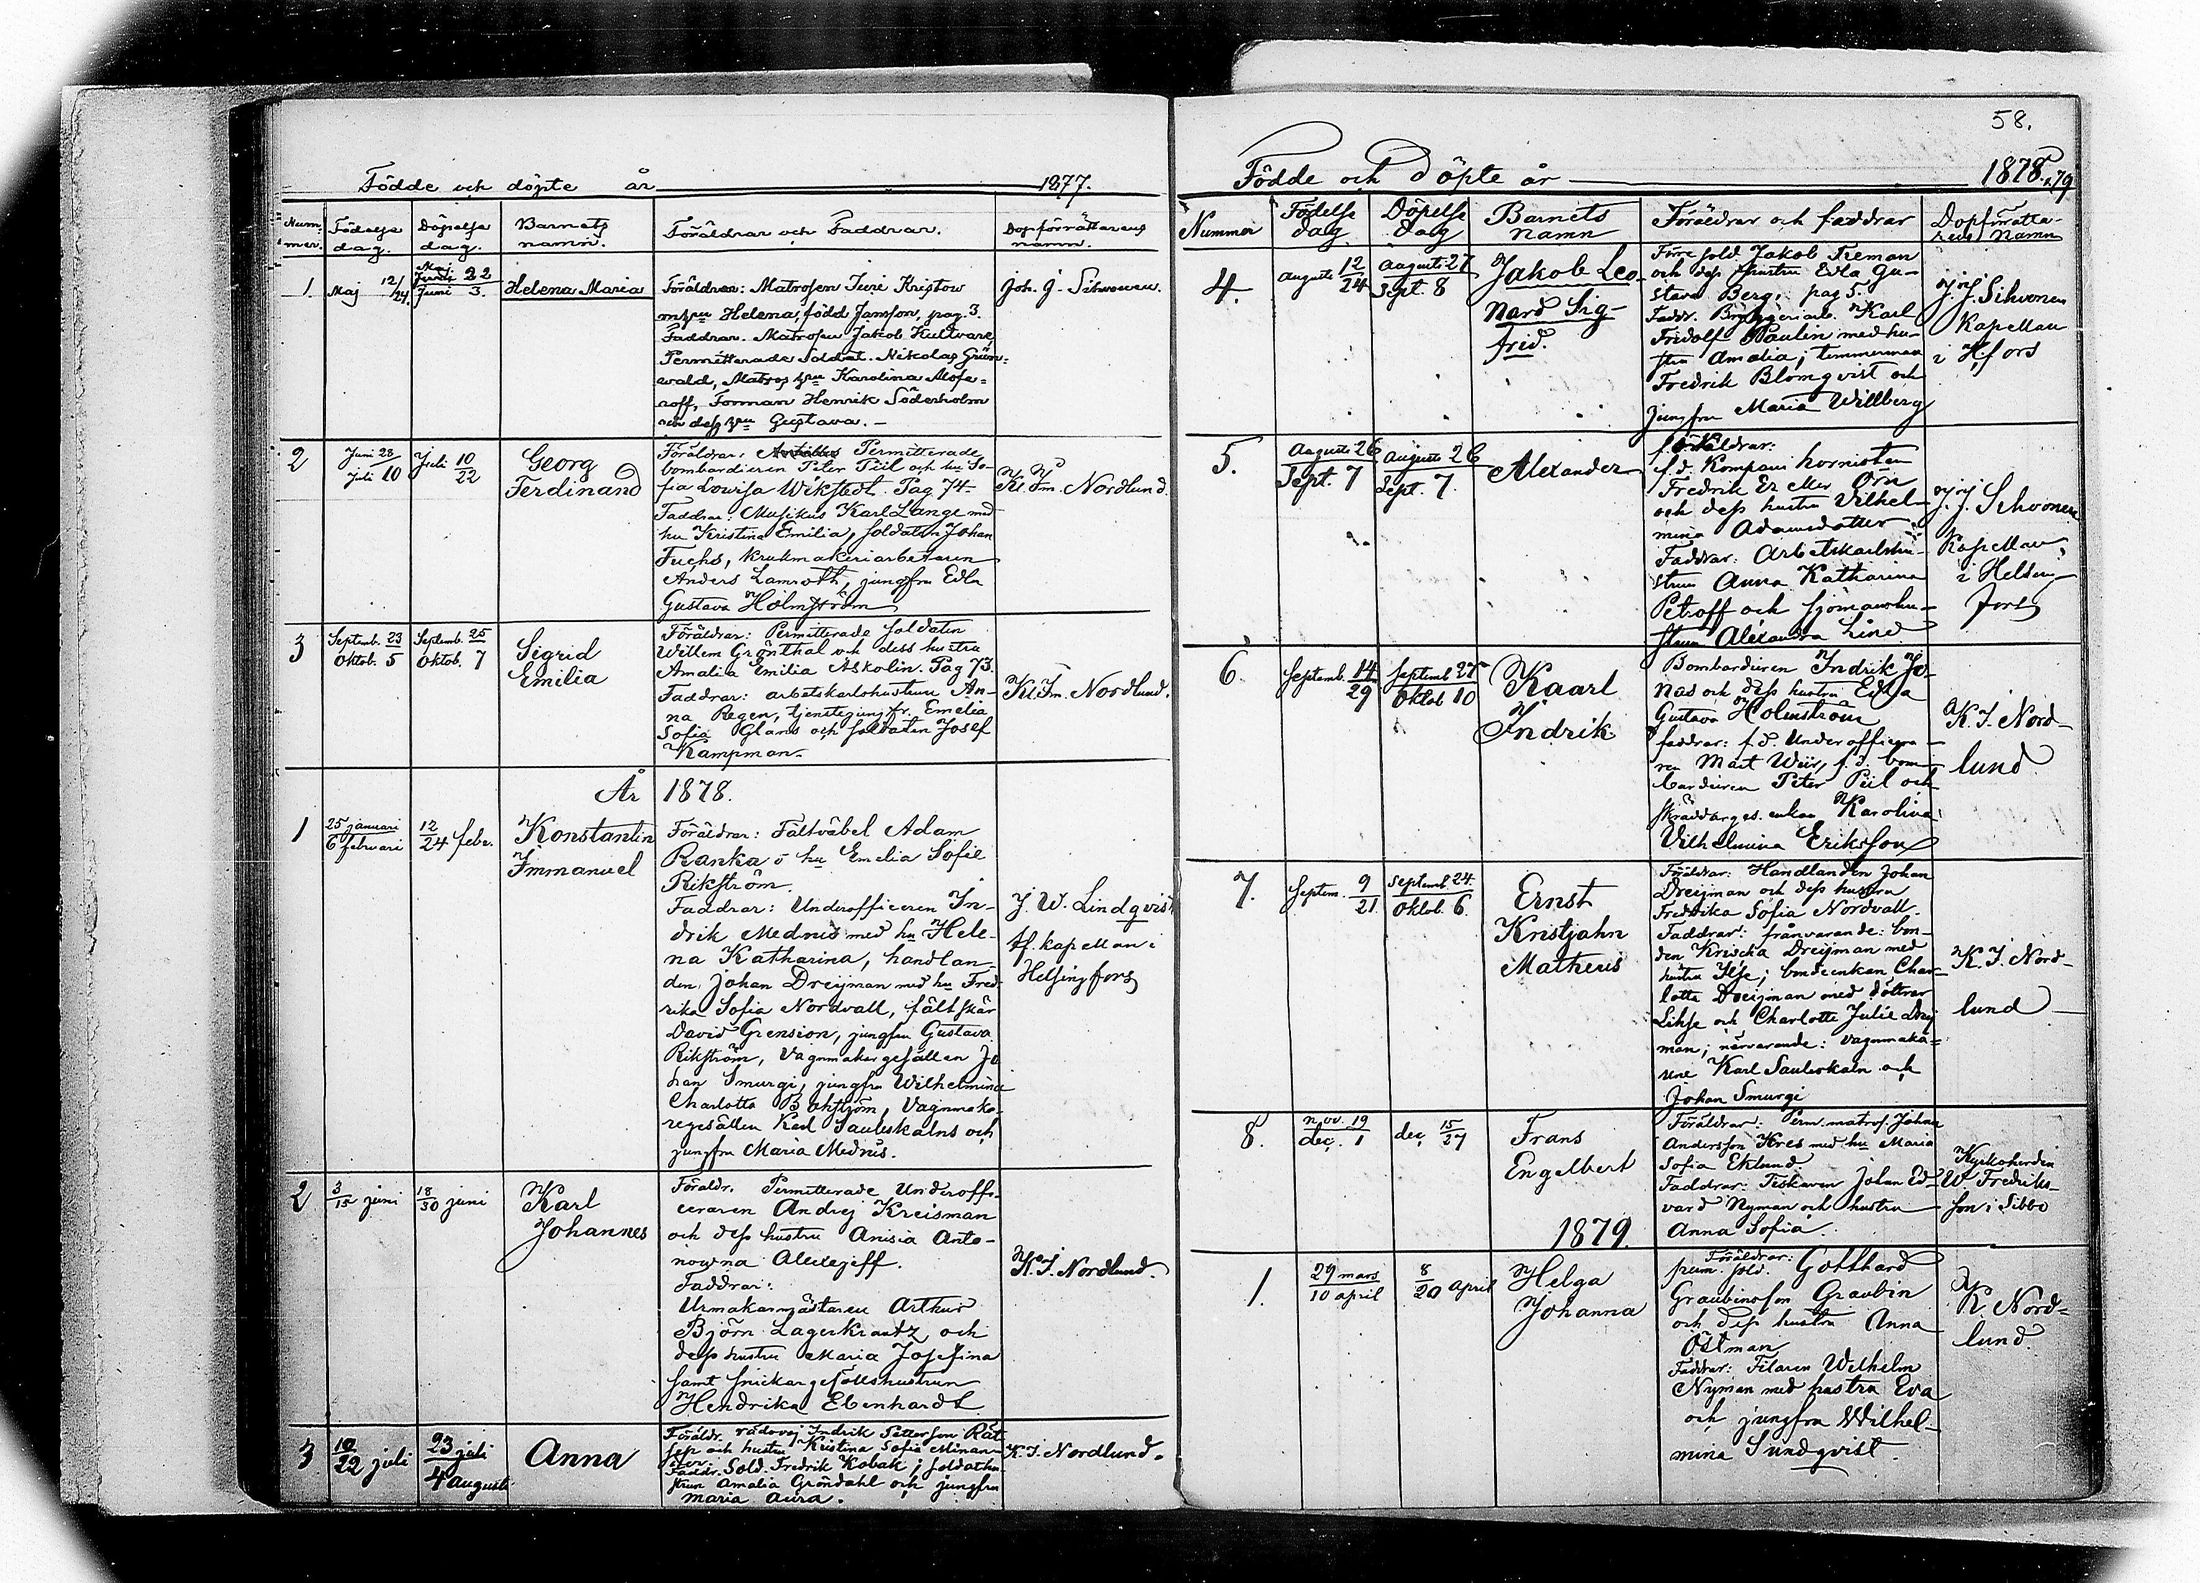 Födde och döpte år 1877.
Num_mer. Födelse dag. Döpelse dag. Barnets namn. Föräldrar och Faddrar. Dopförrättarens namn.
1. Maj 12/24. Maj 22 / Juni 3. Helena Maria
Föräldrar: Matrosen Juri Kristow
Helena, född Jansson, pag. 3.
Faddrar. Matrosen Jakob Kultvare,
Permitterade Soldat. Nikolas Grün=
wald, Matros Karolina
roff, Forman Henrik Söderholm
och dess Gustava. –
Joh. J. Sihvonen.
2 Juni 28 / Juli 10 Juli 10/22 Georg
Ferdinand
Föräldrar: Permitterade
bombardieren Peter Piil och hu So-
fia Lovisa Wikstedt. Pag 74.
Faddrar: Musikus Karl Lange med
hu Kristina Emilia, soldaten Johan
Fuchs, krukmakeriarbetaren
Anders Lamroth, jungfru Edla
Gustava Holmström
Kl. Im. Nordlund.
3 Septemb. 23 / Oktob. 5 Septemb. 25 / Oktob. 7 Sigrid
Emilia
Föräldrar: Permitterade soldaten
Willem Grönthal och dess hustru
Amalia Emilia Askolin. Pag 73.
Faddrar: arbetskarlshustrun An-
na Regen, tjenstejungfr. Emelia
Sofia Glans och soldaten Josef
Kampman.
Kl. Im. Nordlund.
År 1878.
1 25 januari / 6 februari 12/24 febr. Konstantin
Immanuel
Föräldrar: Fältväbel Adam
Ranka o hu Emelia Sofie
Rikström.
Faddrar: Underofficeren In-
drik Mednis med hu Hele-
na Katharina, handlan-
den Johan Dreijman med hu Fred-
rika Sofia Nordvall, fältskär
David Grension, jungfru Gustava
Rikström, Vagnmakargesällen Jo
han Smurgi, jungfru Wilhelmina
Charlotta Bakström, Vagnmaka-
regesällen Karl Sauleskalns och
jungfru Maria Mednis.
J. W. Lindqvist
tf. kapellan i
Helsingfors
2 3/15 juni 18/30 juni Karl
Johannes
Föräldr. Permitterade Underoffi-
ceraren Andrej Kreisman
och dess hustru Anisia Anto-
nowna Alexejeff.
Faddrar:
Urmakarmästaren Arthur
Björn Lagerkrantz och
dess hustru Maria Josefina
samt snickargesällshustrun
Hendrika Ebenhardt
K. I. Nordlund.
3 10/22 juli 23 juli / 4 augusti Anna
Föräldr. Indrik Petterson Rät
sep och hustru Kristina Sofia Minan
Faddr. Sold. Fredrik Kobak; soldathu-
strun Amalia Gröndahl och jungfru
Maria Aura.
K. I. Nordlund.
58.
Födde och Döpte år 1878.79
Nummer Födelse dag Döpelse dag Barnets namn Föräldrar och faddrar Dopförrätta-rens Namn
4. Augusti 12/24 Augusti 27 / Sept. 8 Jakob Leo-
nard Sig-
frid.
Före sold. Jakob Tieman
och dess hustru Edla Gu-
stava Berg. pag 5.
Faddr. Bryggeriarb. Karl
Fridolf Paulin med hu-
stru Amalia, timmerman
Fredrik Blomqvist och
jungfru Maria Willberg
J. J. Sihvonen
Kapellan
i H:fors
5. Augusti 26 / Sept. 7 Augusti 26 / Sept. 7. Alexander
föräldrar:
f. d. Kompani hornisten
Fredrik Er eller Örn
och dess hustru Vilhel-
mina Adamsdotter.
Faddrar: Arbetskarlshu-
strun Anna Katharina
Petroff och sjömanshu-
strun Alexandra Lind
J. J. Sihvonen
Kapellan
i Helsing-
fors
6. Septemb. 14/29 Septemb 28 / Oktob 10 Kaarl
Indrik
Bombardieren Indrik Jo-
nas och dess hustru Edla
Gustava Holmström
faddrar: f. d. Underofficera-
ren Mart Wiir, f. d. bom-
bardieren Peter Piil och
skräddarges. enkan Karolina
Vilhelmina Eriksson
K. I. Nord-
lund
7. Septem. 9/21 Septemb 24. / Oktob. 6. Ernst
Kristjahn
Matheus
Föräldrar: Handlanden Johan
Dreijman och dess hustru
Fredrika Sofia Nordvall.
Faddrar: frånvarande: bon-
den Krischa Dreijman med
hustru Ilse; bondeenkan Char-
lotte Dreijman med döttrar
Lihse och Charlotte Julie Drej
man; närvarande: vagnmaka=
rne Karl Sauleskaln och
Johan Smurgi
K. I. Nord-
lund
8. nov. 19 / dec. 1 dec. 15/27 Frans
Engelbert
Föräldrar: Perm. matros. Johan
Andersson Kres med hu Maria
Sofia Eklund.
Faddrar: Fiskaren Johan Ed-
vard Nyman och hustru
Anna Sofia.
Kyrkoherden
W Fredriks-
son i Sibbo
1879.
1. 29 mars / 10 april 8/20 april Helga
Johanna
Föräldrar:
perm. sold. Gotthard
Graubinsson Graubin
och dess hustru Anna
Östman
Faddrar: Filaren Wilhelm
Nyman med hustru Eva
och jungfru Wilhel-
mina Sundqvist.
K Nord=
lund.